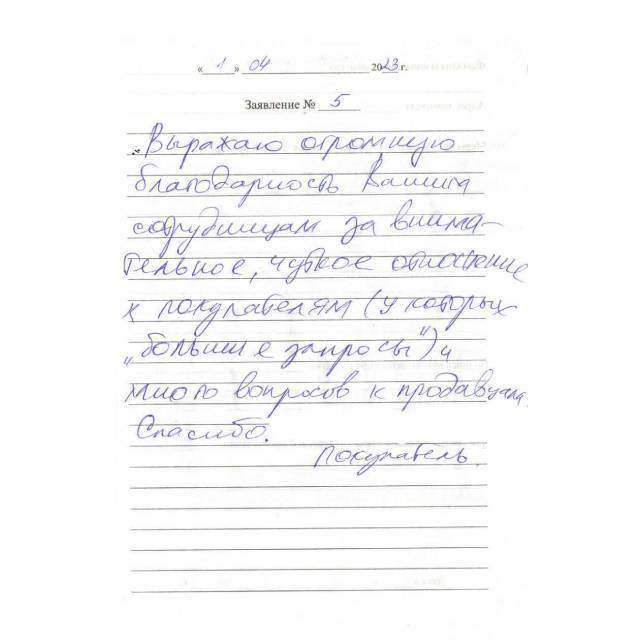 « 1 » 04 2023 г.
Заявление № 5
Выражаю огромную
благодарность Вашим
сотрудницам за внима-
тельное, чуткое отношение
к покупателям (у которых
"большие запросы") и
много вопросов к продавцам.
Спасибо.
Покупатель.